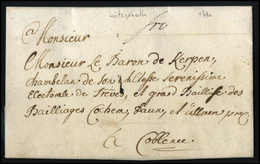 fro
a Monsieur
Monsieur Le Baron de Kerpen,
Chambelan de Son Altesse Serenissime
Electorale de Treves, et grand Baillif des
Bailliages Cochem, et
a Coblence